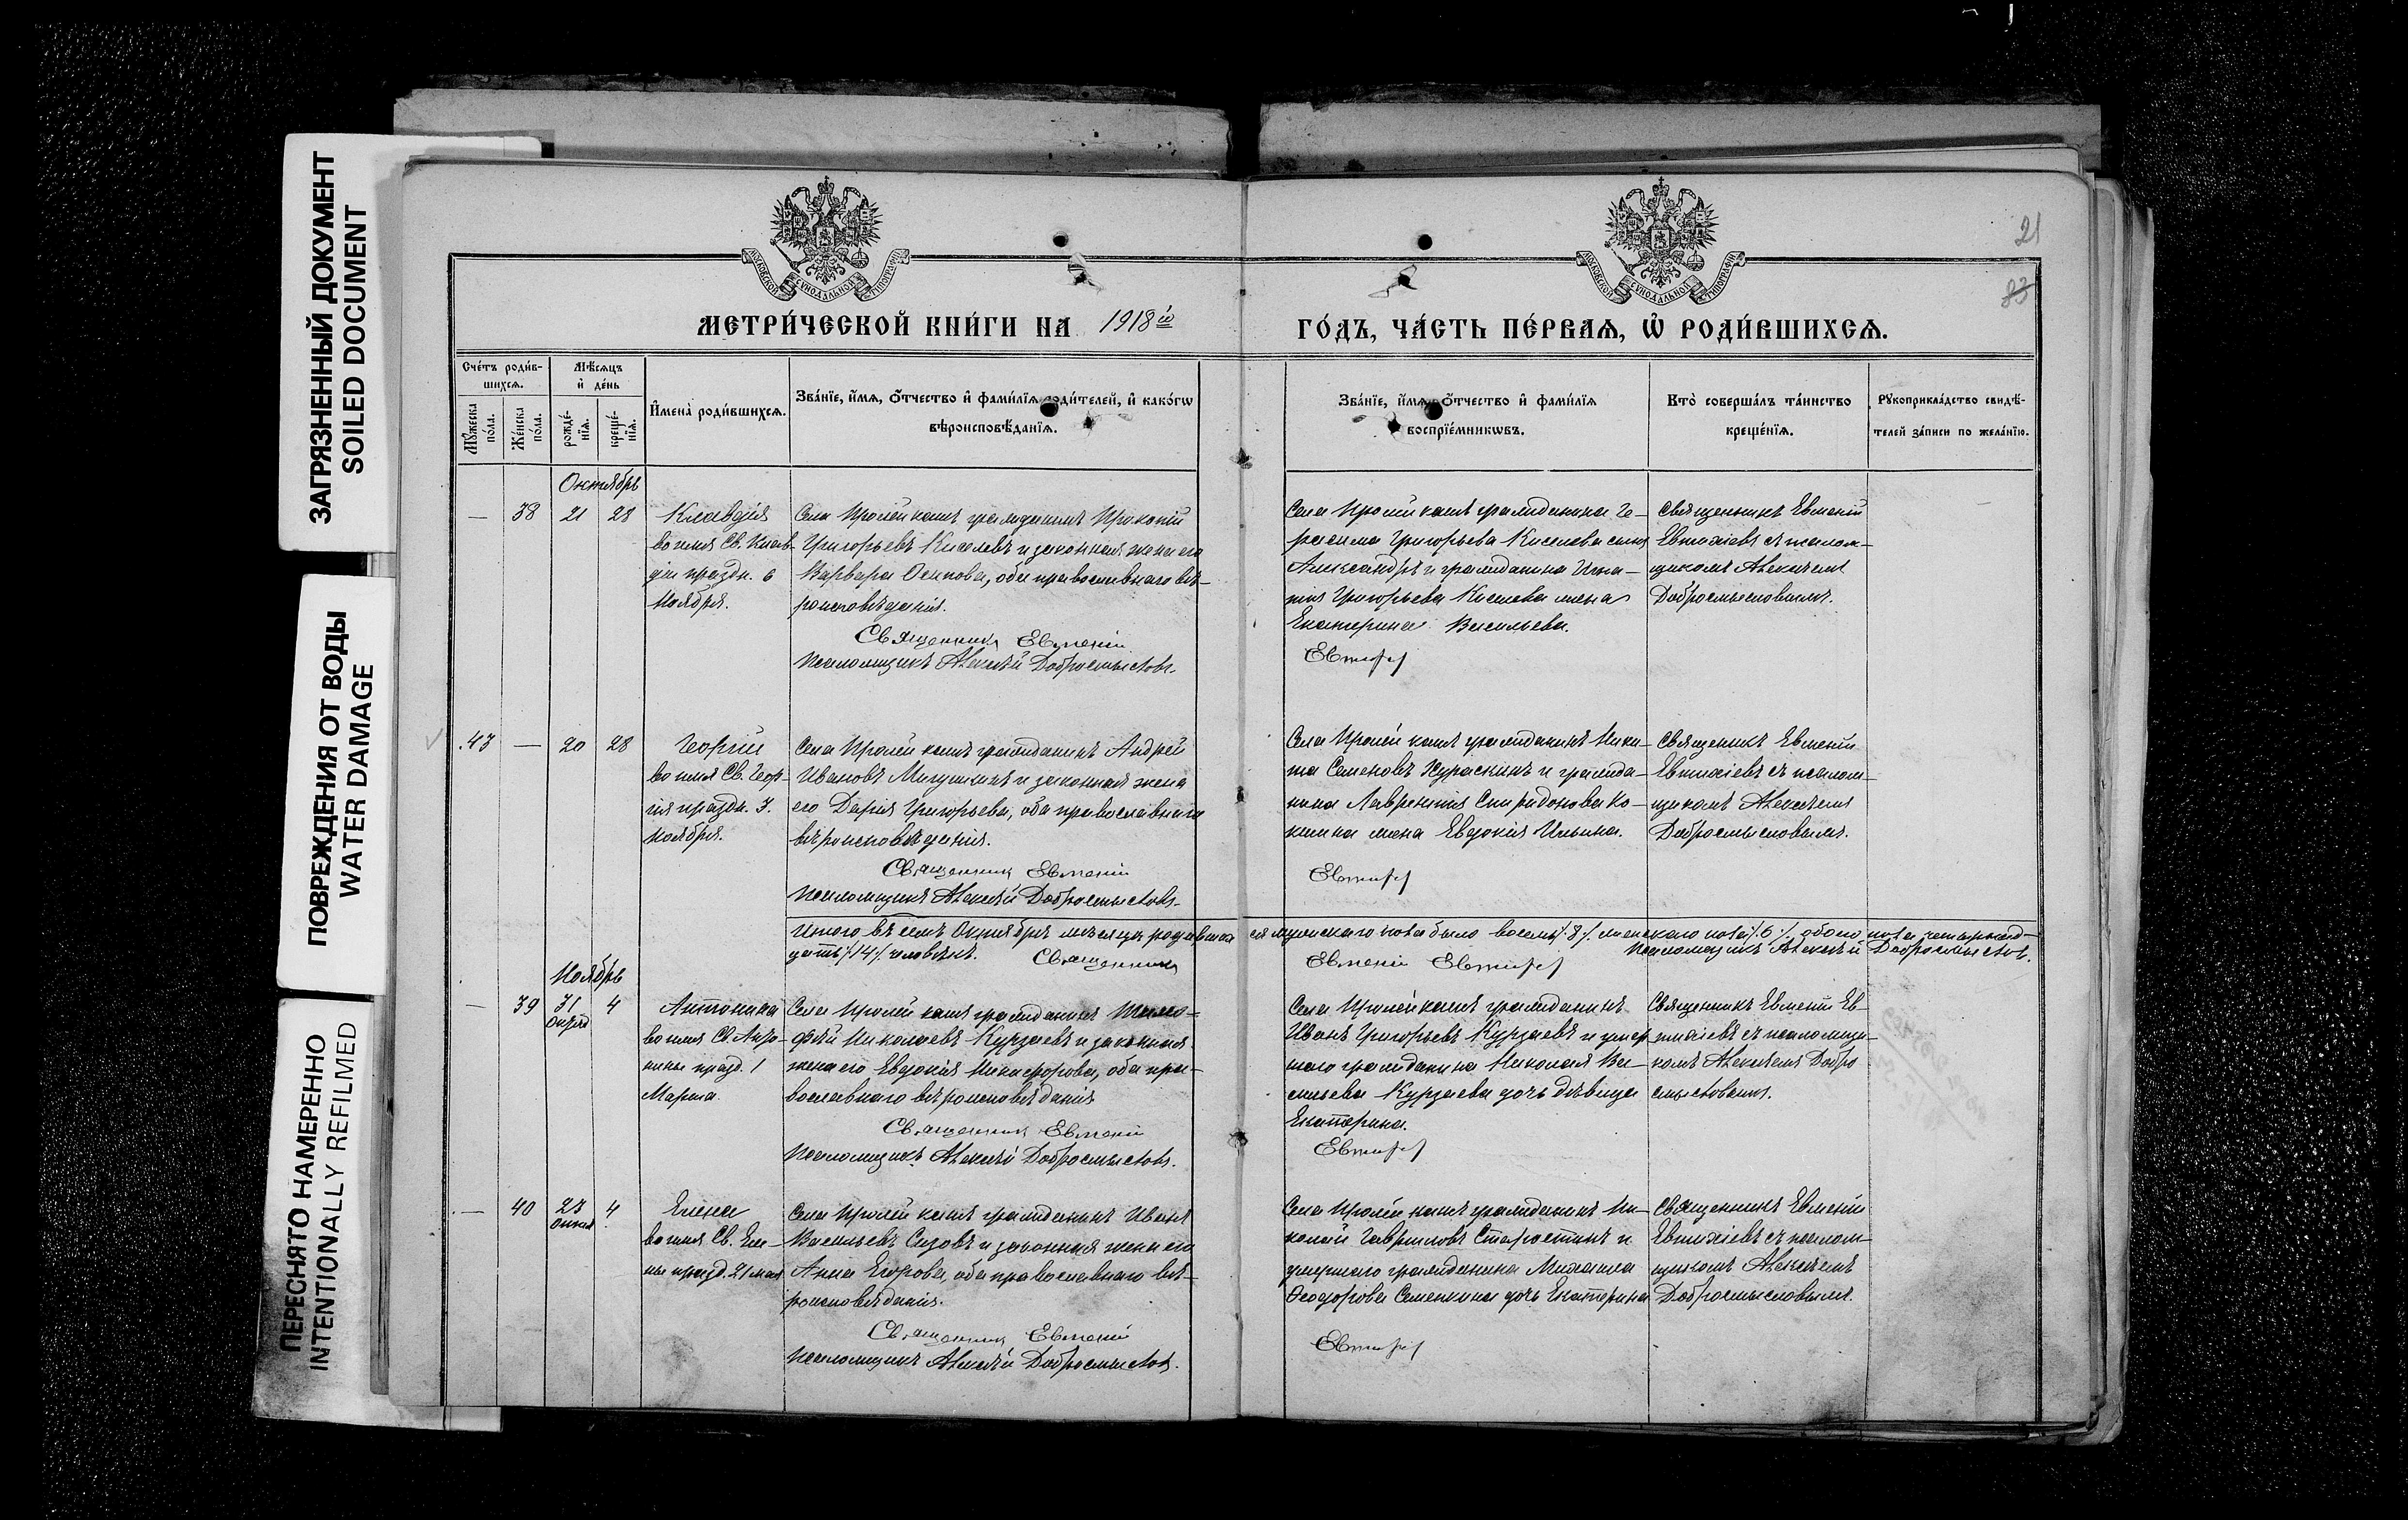 ЗАГРЯЗНЕННЫЙ ДОКУМЕНТ
SOILED DOCUMENT
ПОВРЕЖДЕНИЯ ОТ ВОДЫ
WATER DAMAGE
ПЕРЕСНЯТО НАМЕРЕННО
INTENTIONALLY REFILMED
21
83
МОСКОВСКОЙ СѴНОДАЛЬНОЙ ТИПОГРАФІИ
МОСКОВСКОЙ СѴНОДАЛЬНОЙ ТИПОГРАФІИ
МЕТРИ́ЧЕСКОЙ КНИ́ГИ НА 1918й ГО́ДЪ, ЧА́СТЬ ПЕ́РВАЯ, Ѿ РОДИ́ВШИХСЯ.
Сче́тъ роди́в-
шихся.
Мѣ́сяцъ
и де́нь
Му́жеска по́ла.
Же́нска по́ла.
рожде́-нїя.
креще́-нїя.
Имена̀ роди́вшихся.
Зва́нїе, и́мя, о́тчество и фами́лїя роди́телей, и како́гѡ
вѣроисповѣ́данїя.
Зва́нїе, и́мя, о́тчество и фами́лїя
воспрїе́мникѡвъ.
Кто̀ соверша́лъ та́инство
креще́нїя.
Рукоприкла́дство свидѣ́-
телей за́писи по жела́нїю.
Октябрь
— 38 21 28
Клавдія
во имя Св. Клав-
діи праздн. 6
Ноября.
гражданинъ Прокопій
Григорьевъ Киселевъ и законная жена его
Варвара Осипова, оба православнаго вѣ-
роисповѣданія.
Священникъ Евменій
Псаломщикъ Алексѣй Добросмысловъ.
гражданина Ге-
расима Григорьева Киселева сынъ
Александръ и гражданина Игна-
тія Григорьева Киселева жена
Екатерина Васильева.
Священникъ Евменій
Евтихіевъ съ псалом-
щикомъ Алексѣемъ
Добросмысловымъ.
43 — 20 28
Георгій
во имя Св. Геор-
гія праздн. 3.
ноября.
гражданинъ Андрей
Ивановъ и законная жена
его Дарія Григорьева, оба православнаго
вѣроисповѣданія.
Священникъ Евменій
Псаломщикъ Алексѣй Добросмысловъ.
гражданинъ Ники-
та Семеновъ и гражда-
нина Лаврентія Спиридонова Ко-
кина жена Евдокія Ильина.
Священникъ Евменій
Евтихіевъ съ псалом-
щикомъ Алексѣемъ
Добросмысловымъ.
Итого въ семъ Октябрѣ мѣсяцѣ родившихся мужскаго пола было восемь/8/. женскаго пола/6/. обоего пола четырнад-
цать/14/. человѣкъ. Священникъ Евменій Псаломщикъ Алексѣй Добросмысловъ.
Ноябрь
— 39 31 4
Антонина
во имя Св. Анто-
нины празд. 1
Марта.
гражданинъ Тимо-
фѣй Николаевъ Курзаевъ и законная
жена его Евдокія Никифорова, оба пра-
вославнаго вѣроисповѣданія
Священникъ Евменій
Псаломщикъ Алексѣй Добросмысловъ.
гражданинъ
Иванъ Григорьевъ Курзаевъ и умер
шаго гражданина Николая Ва-
сильева Курзаева дочь дѣвица
Екатерина.
Священникъ Евменій Ев-
тихіевъ съ псаломщи-
комъ Алексѣемъ Добро
смысловымъ.
— 40 23 4
Елена
во имя Св. Еле-
ны празд. 21 мая
гражданинъ Иванъ
Васильевъ Сизовъ и законная жена его
Анна Егорова, оба православнаго вѣ-
роисповѣданія.
Священникъ Евменій
Псаломщикъ Алексѣй Добросмысловъ.
гражданинъ Ни-
колай Гавриловъ Старостинъ и
умершаго гражданина Михаила
Ѳеодорова Семенкина дочь Екатерина
Священникъ Евменій
Евтихіевъ съ псалом-
щикомъ Алексѣемъ
Добросмысловымъ.